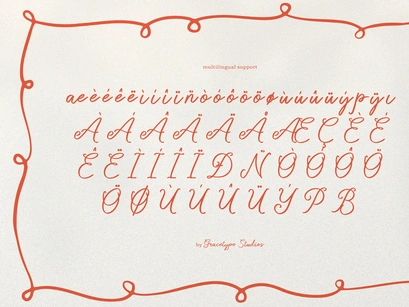 multilingual support
æèéêëìíîïñòóôöõøùúûüýþÿı
ÀÁÂÃÄÅÆÇÈÉ
ÊËÌÍÎÏÐÑÒÓÔ
ÖØÙÚÛÜÝÞẞ
by Gracetype Studios